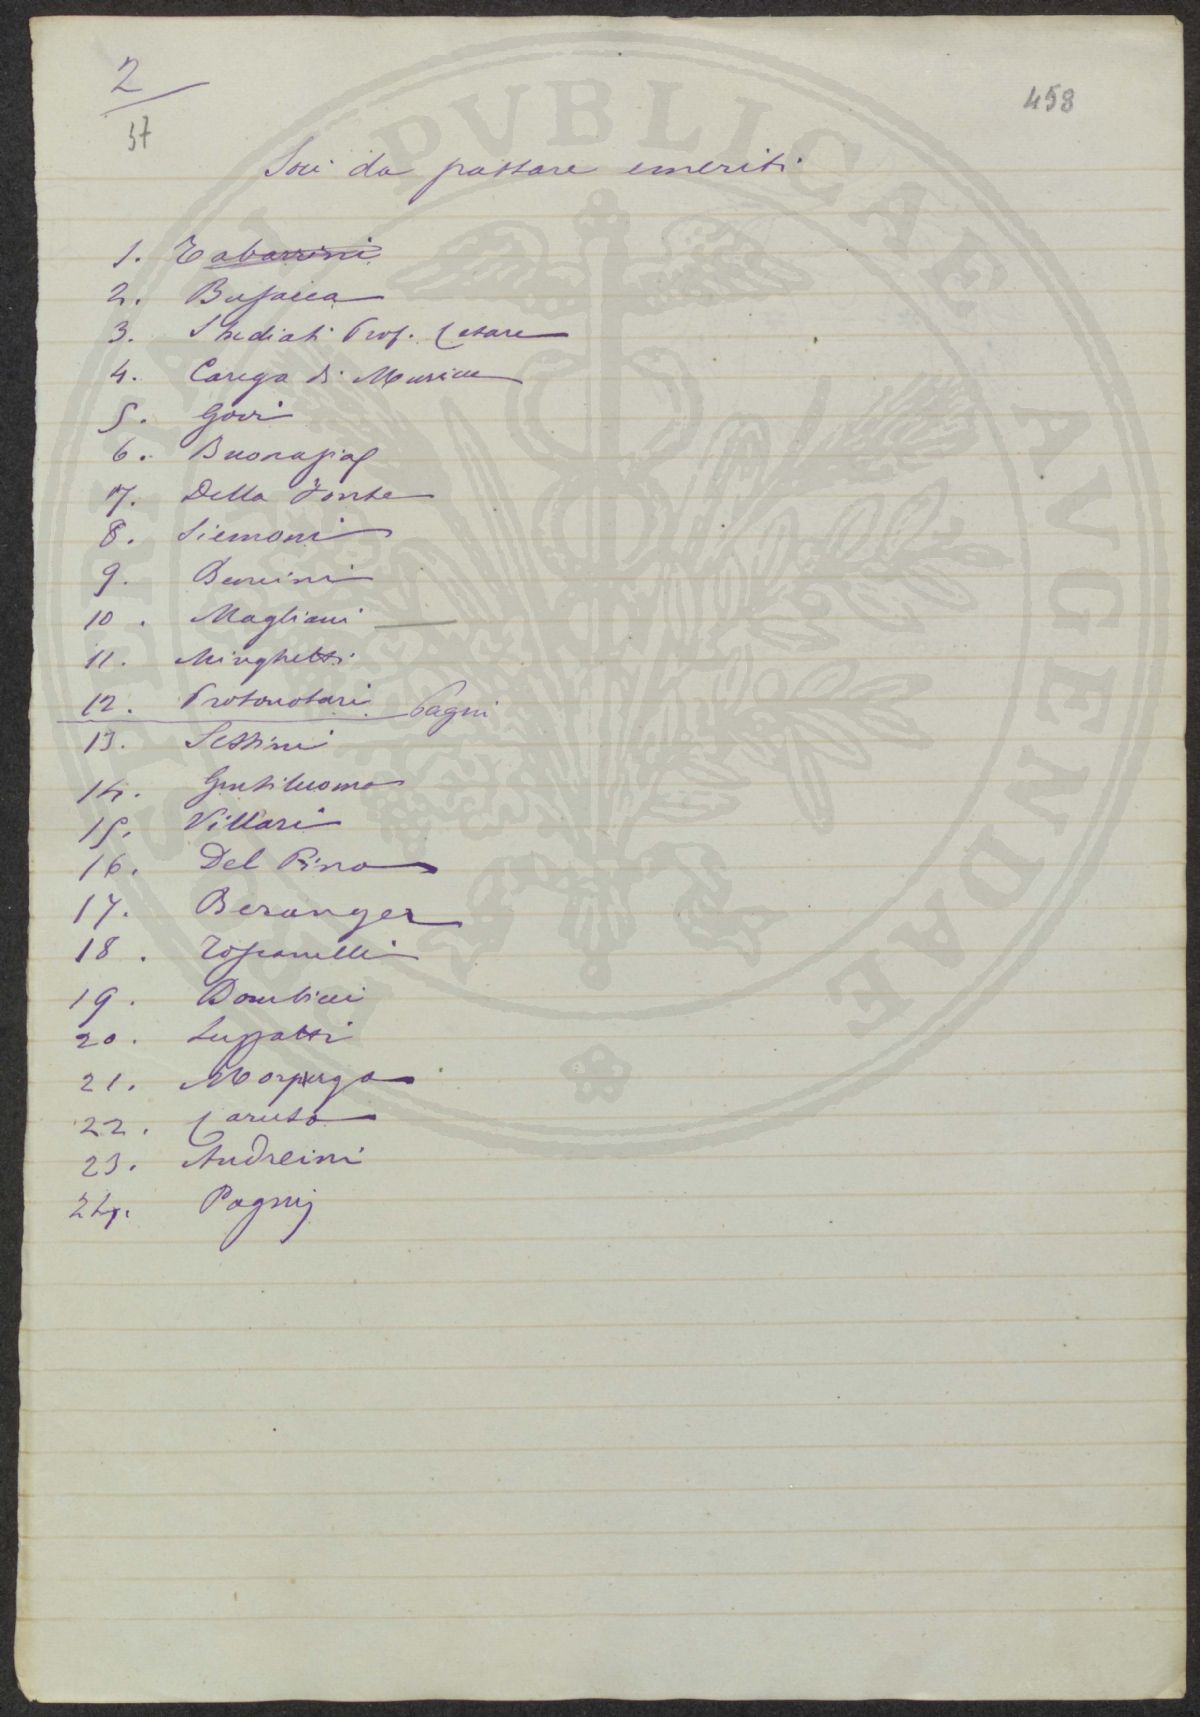 2
37
458
Soci da passare emeriti
1. Tabarrini
2. Busacca
3. Studiati Prof. Cesare
4. Carega di Muricce
5. Govi
6.
7. Della Fonte
8. Siemoni
9. Bencini
10. Magliani
11. Minghetti
12. Protonotari Pagni
13. Sestini
14. Gentiluomo
15. Villari
16. Del Pino
17. Beranger
18. Toscanelli
19. Bombicci
20. Luzzatti
21. Morpurgo
22. Caruso
23. Andreini
24. Pagni
PVBLICAE AVGENDAE